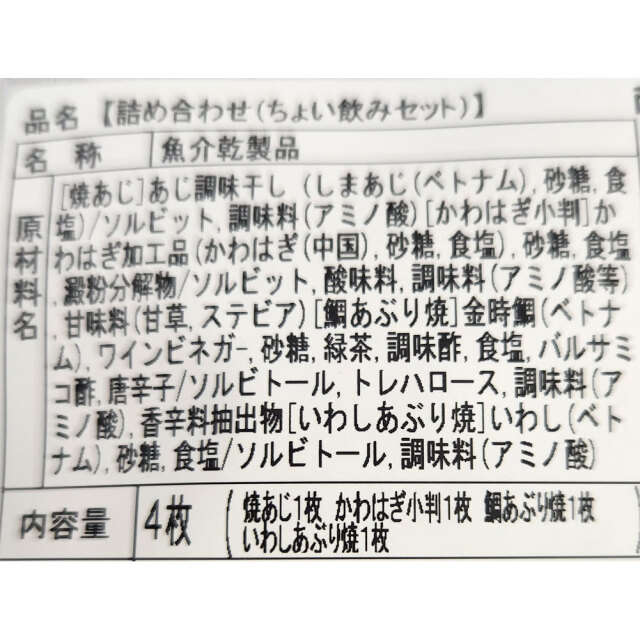 品名 【詰め合わせ(ちょい飲みセット)】
名称 魚介乾製品
原材料名
[焼あじ]あじ調味干し (しまあじ(ベトナム), 砂糖, 食
塩)/ソルビット, 調味料(アミノ酸)[かわはぎ小判]か
わはぎ加工品(かわはぎ(中国), 砂糖, 食塩), 砂糖, 食塩
, 澱粉分解物/ソルビット, 酸味料, 調味料(アミノ酸等)
, 甘味料(甘草, ステビア)[鯛あぶり焼]金時鯛(ベトナ
ム), ワインビネガー, 砂糖, 緑茶, 調味酢, 食塩, バルサミ
コ酢, 唐辛子/ソルビトール, トレハロース, 調味料(ア
ミノ酸), 香辛料抽出物[いわしあぶり焼]いわし(ベト
ナム), 砂糖, 食塩/ソルビトール, 調味料(アミノ酸)
内容量 4枚 (焼あじ1枚 かわはぎ小判1枚 鯛あぶり焼1枚
いわしあぶり焼1枚